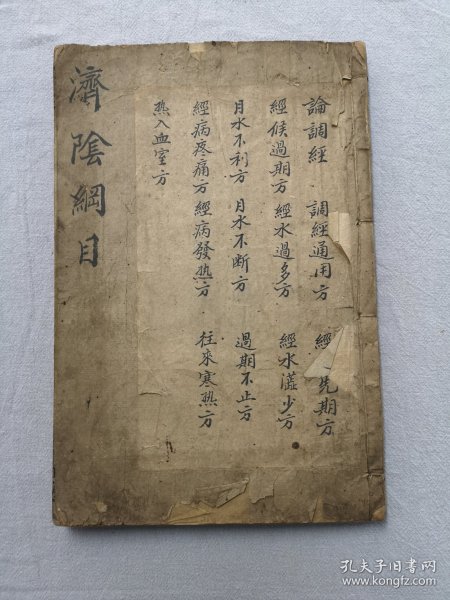 濟陰綱目
論調經 調經通用方 經 先期方
經候過期方 經水過多方 經水澁少方
月水不利方 月水不斷方 過期不止方
經病疼痛方 經病發热方 往來寒热方
热入血室方
孔夫子旧书网
www.kongfz.com